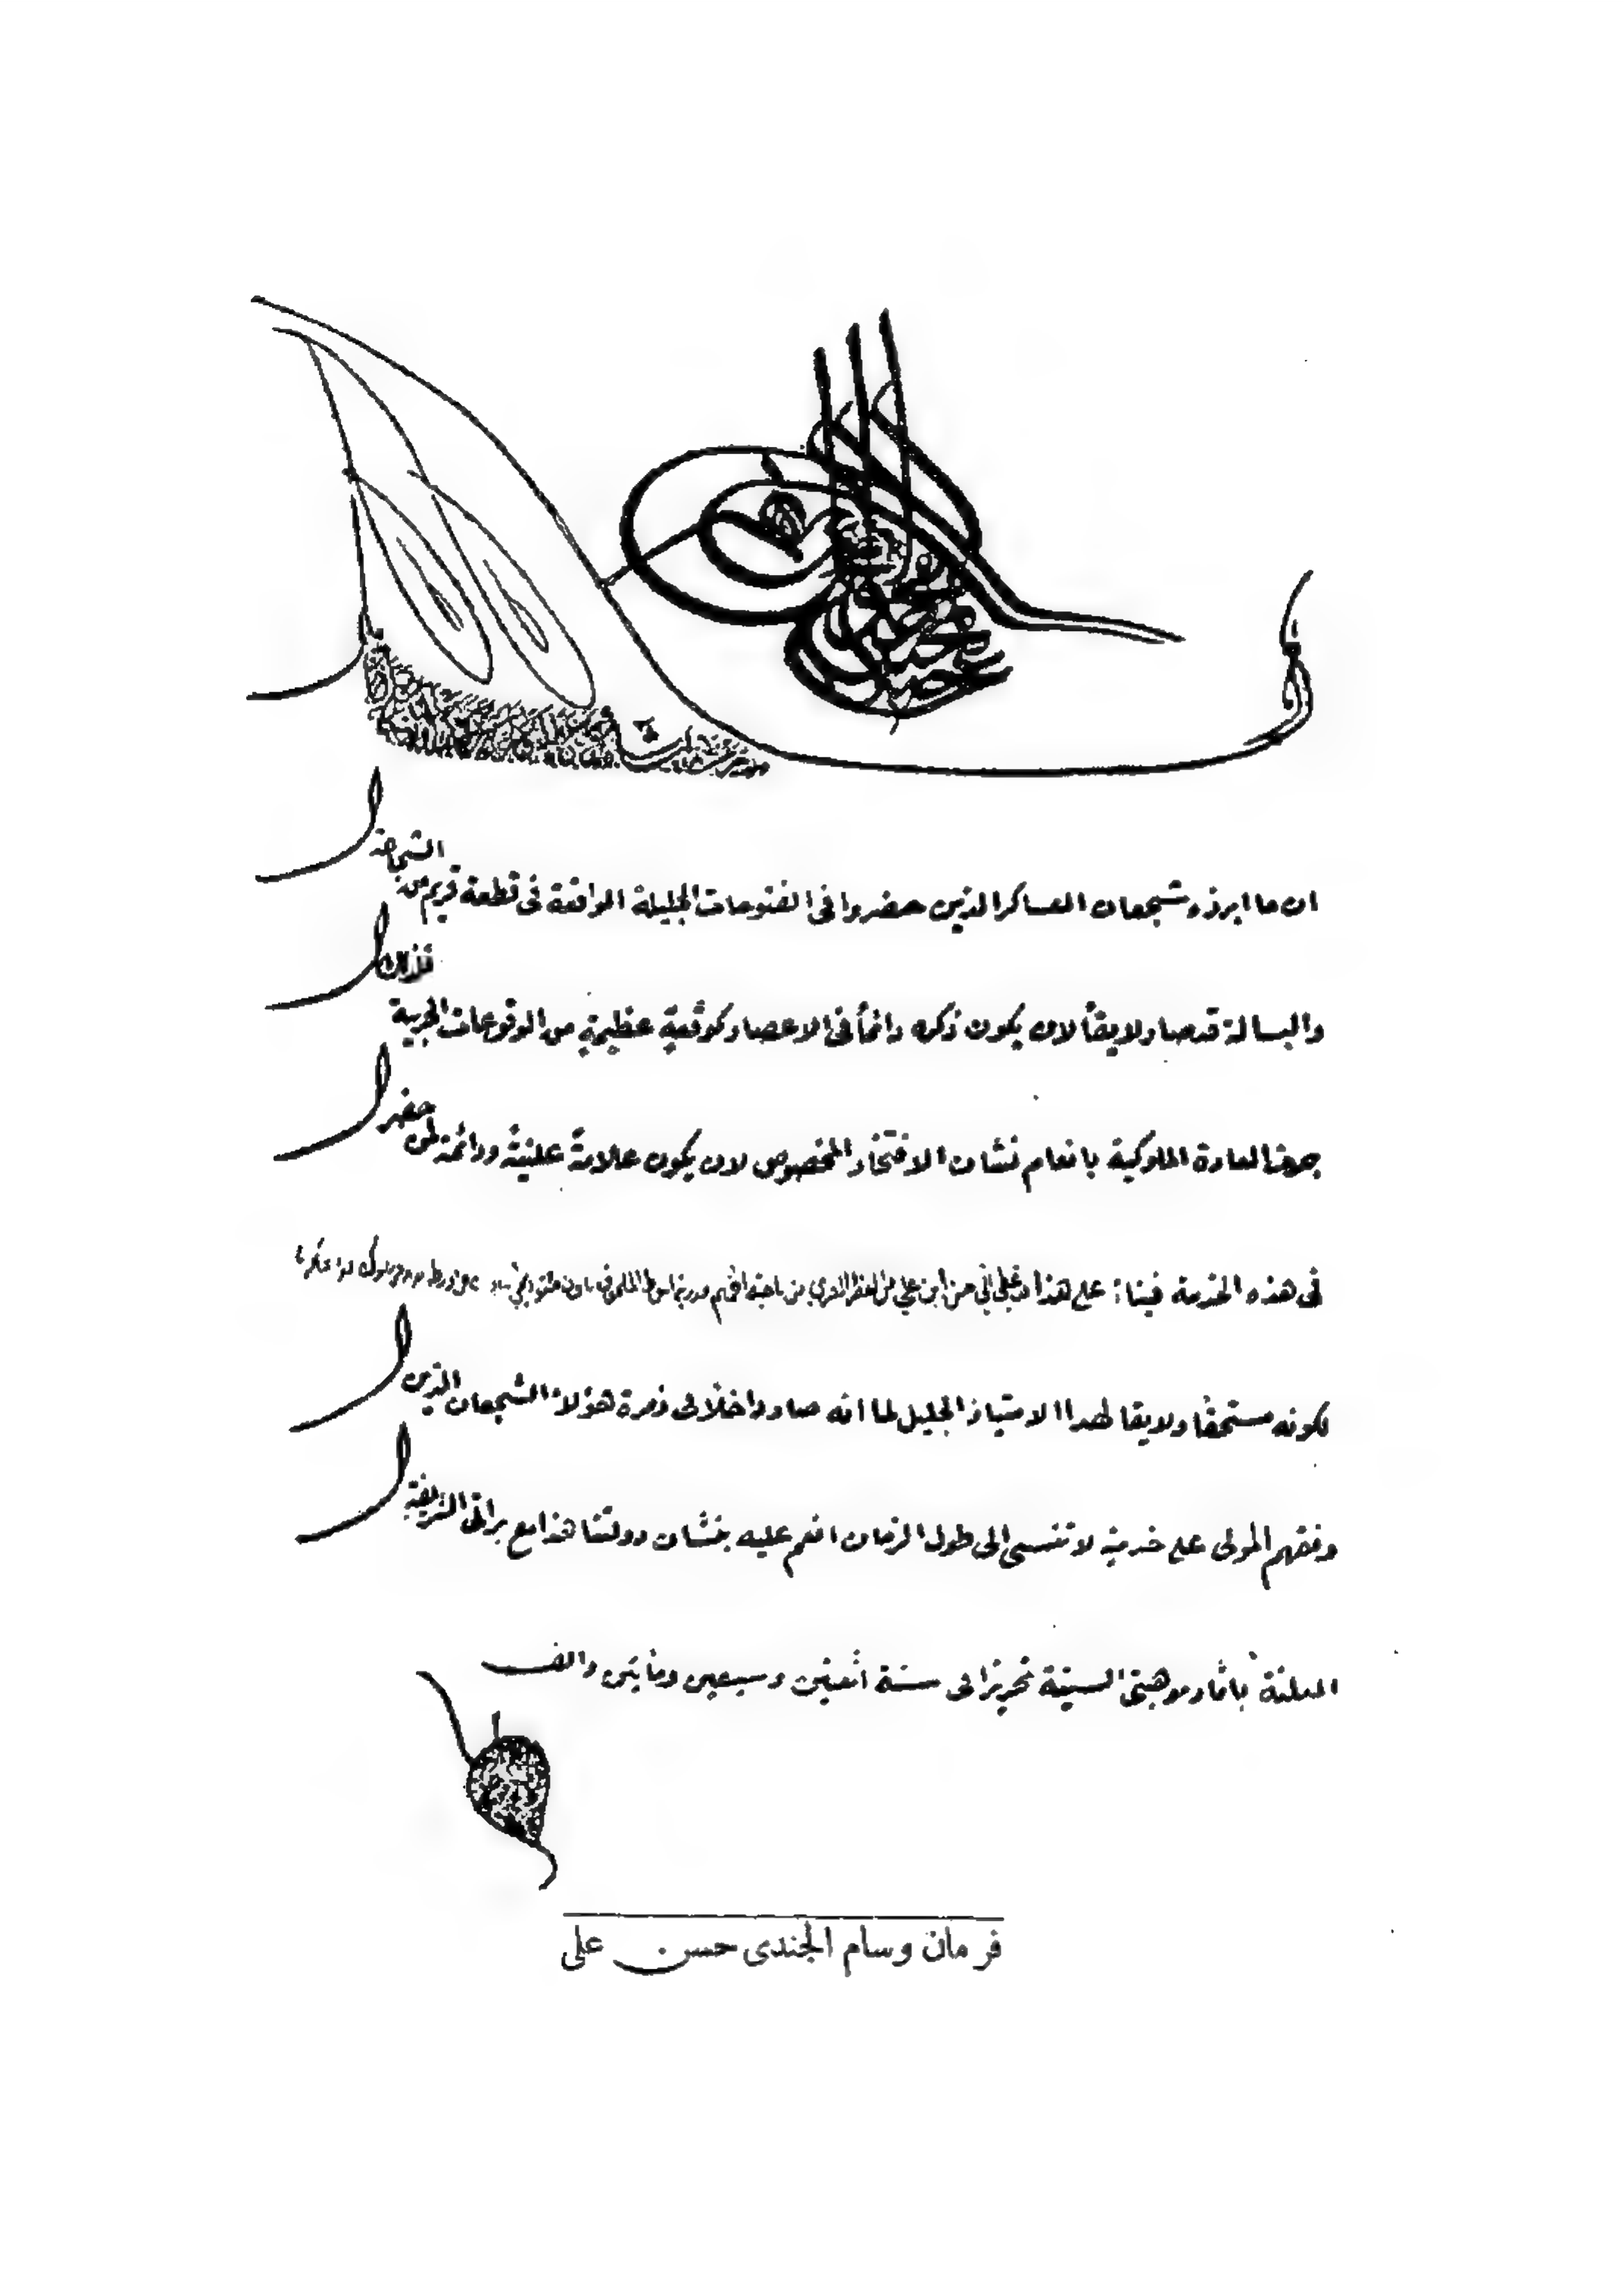 ان ما ابرزه شجعان العساكر الذين حضروا فى الفتوحات الجليلة الواقعة فى قطعة قريم من الشجاعة
والبسالة قد صار لايقاً لان يكون ذكره دائماً فى الاعصار كوقعة عظيمة من الوقوعات الحربية فلذلك
جرت العادة الملوكية بانعام نشان الافتخار المخصوص لان يكون علامة علنية ودائمة لمن حضر
فى هذه الخدمة فبنا: على هذا حسن ابن على من ناحية
لكونه مستحقاً ولايقا لهذا الامتياز الجليل لما انه صار داخلا فى زمرة هؤلاء الشجعان الذين
وفقهم المولى على خدمة لا تنسى الى طول الزمان انعم عليه بنشان دولتنا هذا مع براتى الشريفة
المعلنة باثار موهبتى السنية تحريرا فى سنة اثنين وسبعين ومايتين والف
فرمان وسام الجندى حسن على